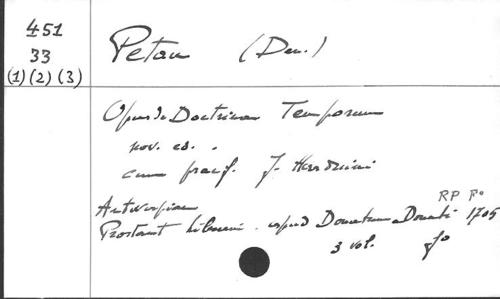 451
33
(1) (2) (3)
Petau (Den.)
Opus de Doctrina Temporum
nov. ed.
cum praef. J. Harduini
RP Fo
Antverpiae
Prostant Liburni apud Donatum Donati 1705
3 vol. fo